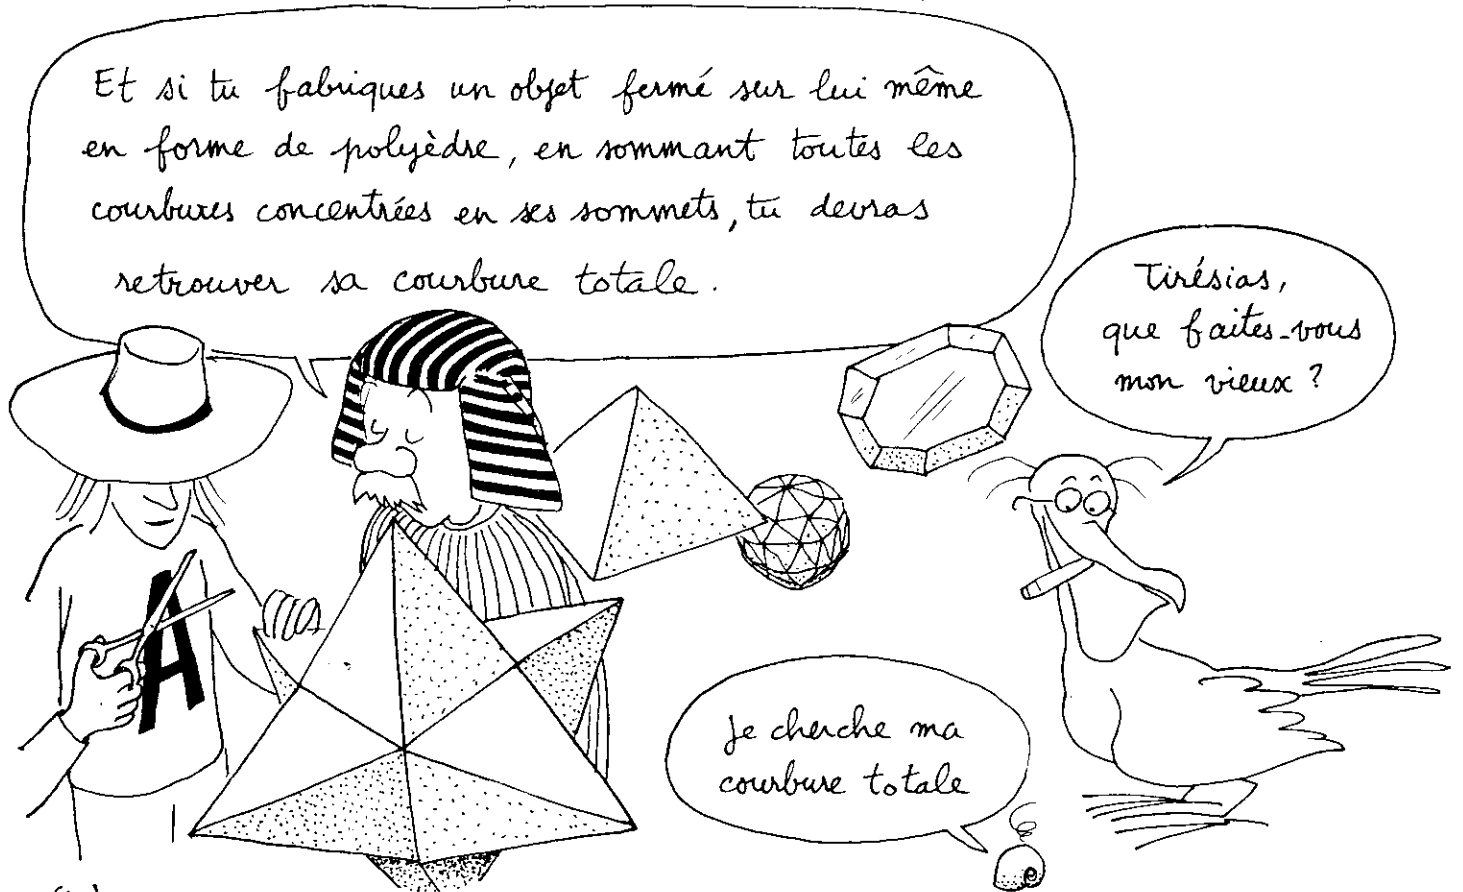 Et si tu fabriques un objet fermé sur lui même
en forme de polyèdre, en sommant toutes les
courbures concentrées en ses sommets, tu devras
retrouver sa courbure totale.
Tirésias,
que faites-vous
mon vieux ?
Je cherche ma
courbure totale
A